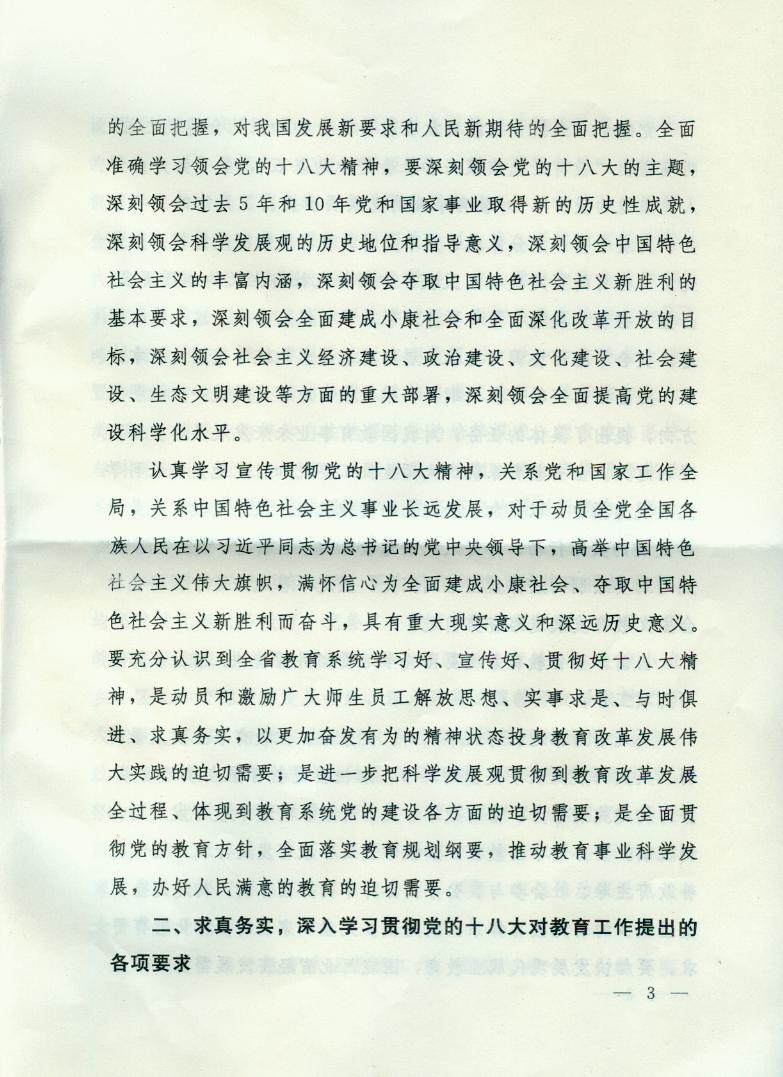 的全面把握，对我国发展新要求和人民新期待的全面把握。全面
准确学习领会党的十八大精神，要深刻领会党的十八大的主题，
深刻领会过去 5 年和 10 年党和国家事业取得新的历史性成就，
深刻领会科学发展观的历史地位和指导意义，深刻领会中国特色
社会主义的丰富内涵，深刻领会夺取中国特色社会主义新胜利的
基本要求，深刻领会全面建成小康社会和全面深化改革开放的目
标，深刻领会社会主义经济建设、政治建设、文化建设、社会建
设、生态文明建设等方面的重大部署，深刻领会全面提高党的建
设科学化水平。
认真学习宣传贯彻党的十八大精神，关系党和国家工作全
局，关系中国特色社会主义事业长远发展，对于动员全党全国各
族人民在以习近平同志为总书记的党中央领导下，高举中国特色
社会主义伟大旗帜，满怀信心为全面建成小康社会、夺取中国特
色社会主义新胜利而奋斗，具有重大现实意义和深远历史意义。
要充分认识到全省教育系统学习好、宣传好、贯彻好十八大精
神，是动员和激励广大师生员工解放思想、实事求是、与时俱
进、求真务实，以更加奋发有为的精神状态投身教育改革发展伟
大实践的迫切需要；是进一步把科学发展观贯彻到教育改革发展
全过程、体现到教育系统党的建设各方面的迫切需要；是全面贯
彻党的教育方针，全面落实教育规划纲要，推动教育事业科学发
展，办好人民满意的教育的迫切需要。
二、求真务实，深入学习贯彻党的十八大对教育工作提出的
各项要求
— 3 —